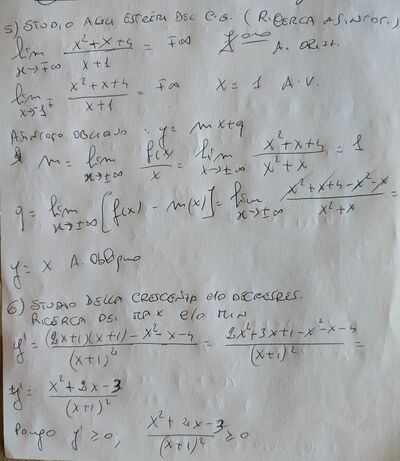 5) STUDIO AGLI ESTREMI DEL C.E. (RICERCA ASINTOT.)
lim x→∓∞ (x²+x+4)/(x+1) = ∓∞ A. ORIZZ.
lim x→-1∓ (x²+x+4)/(x+1) = ∓∞ x = 1 A.V.
ASINTOTO OBLIQUO : y = mx+q
m = lim x→±∞ f(x)/x = lim x→±∞ (x²+x+4)/(x²+x) = 1
q = lim x→±∞ [f(x) - m(x)] = lim x→±∞ (x²+x+4-x²-x)/(x²+x) =
y = x A. Obliquo
6) STUDIO DELLA CRESCENZA e/o DECRESCES.
RICERCA DEI MAX e/o MIN
y' = ((2x+1)(x+1)-x²-x-4)/(x+1)² = (2x²+3x+1-x²-x-4)/(x+1)² =
y' = (x²+2x-3)/(x+1)²
Pongo y' ≥ 0; (x²+2x-3)/(x+1)² ≥ 0